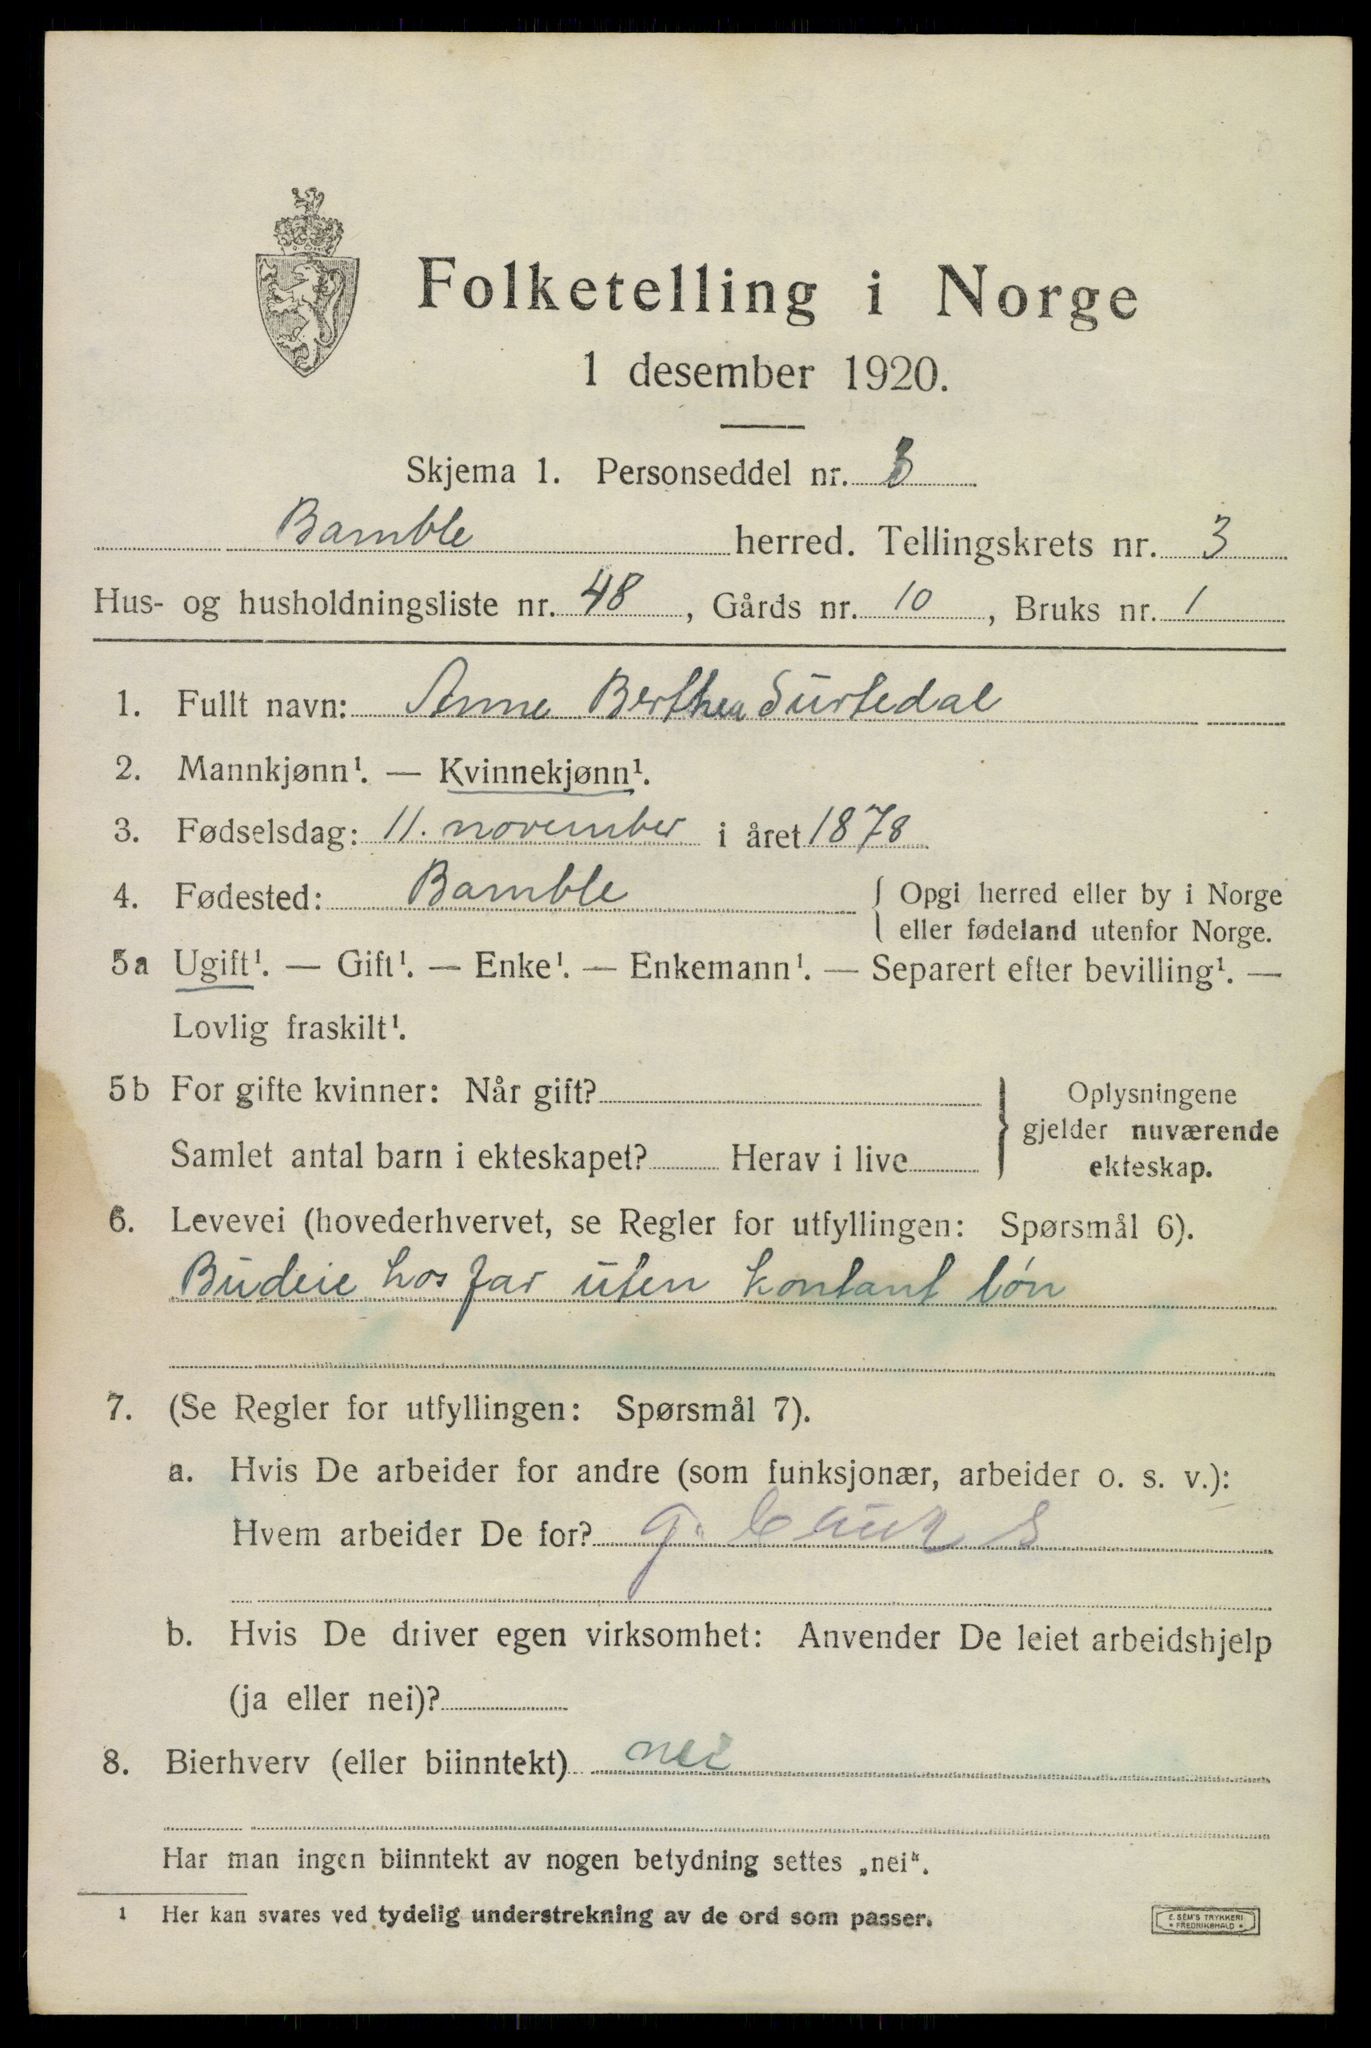 Folketelling i Norge
1 desember 1920.
Skjema 1. Personseddel nr. 3
Bamble herred. Tellingskrets nr. 3
Hus- og husholdningsliste nr. 48, Gårds nr. 10, Bruks nr. 1
1. Fullt navn: Anne Berthea Surtedal
2. Mannkjønn¹. — Kvinnekjønn¹.
3. Fødselsdag: 11. november i året 1878
4. Fødested: Bamble { Opgi herred eller by i Norge
eller fødeland utenfor Norge.
5a Ugift¹. — Gift¹. — Enke¹. — Enkemann¹. — Separert efter bevilling¹. —
Lovlig fraskilt¹.
5b For gifte kvinner: Når gift? } Oplysningene
gjelder nuværende
Samlet antal barn i ekteskapet? Herav i live
ekteskap.
6. Levevei (hovederhvervet, se Regler for utfyllingen: Spørsmål 6).
Budeie hos far uten kontant løn
7. (Se Regler for utfyllingen: Spørsmål 7).
a. Hvis De arbeider for andre (som funksjonær, arbeider o. s. v.):
Hvem arbeider De for?
b. Hvis De driver egen virksomhet: Anvender De leiet arbeidshjelp
(ja eller nei)?
8. Bierhverv (eller biinntekt) nei
Har man ingen biinntekt av nogen betydning settes „nei“.
1 Her kan svares ved tydelig understrekning av de ord som passer.
E. SEM'S TRYKKERI
• FREDRIKSHALD •